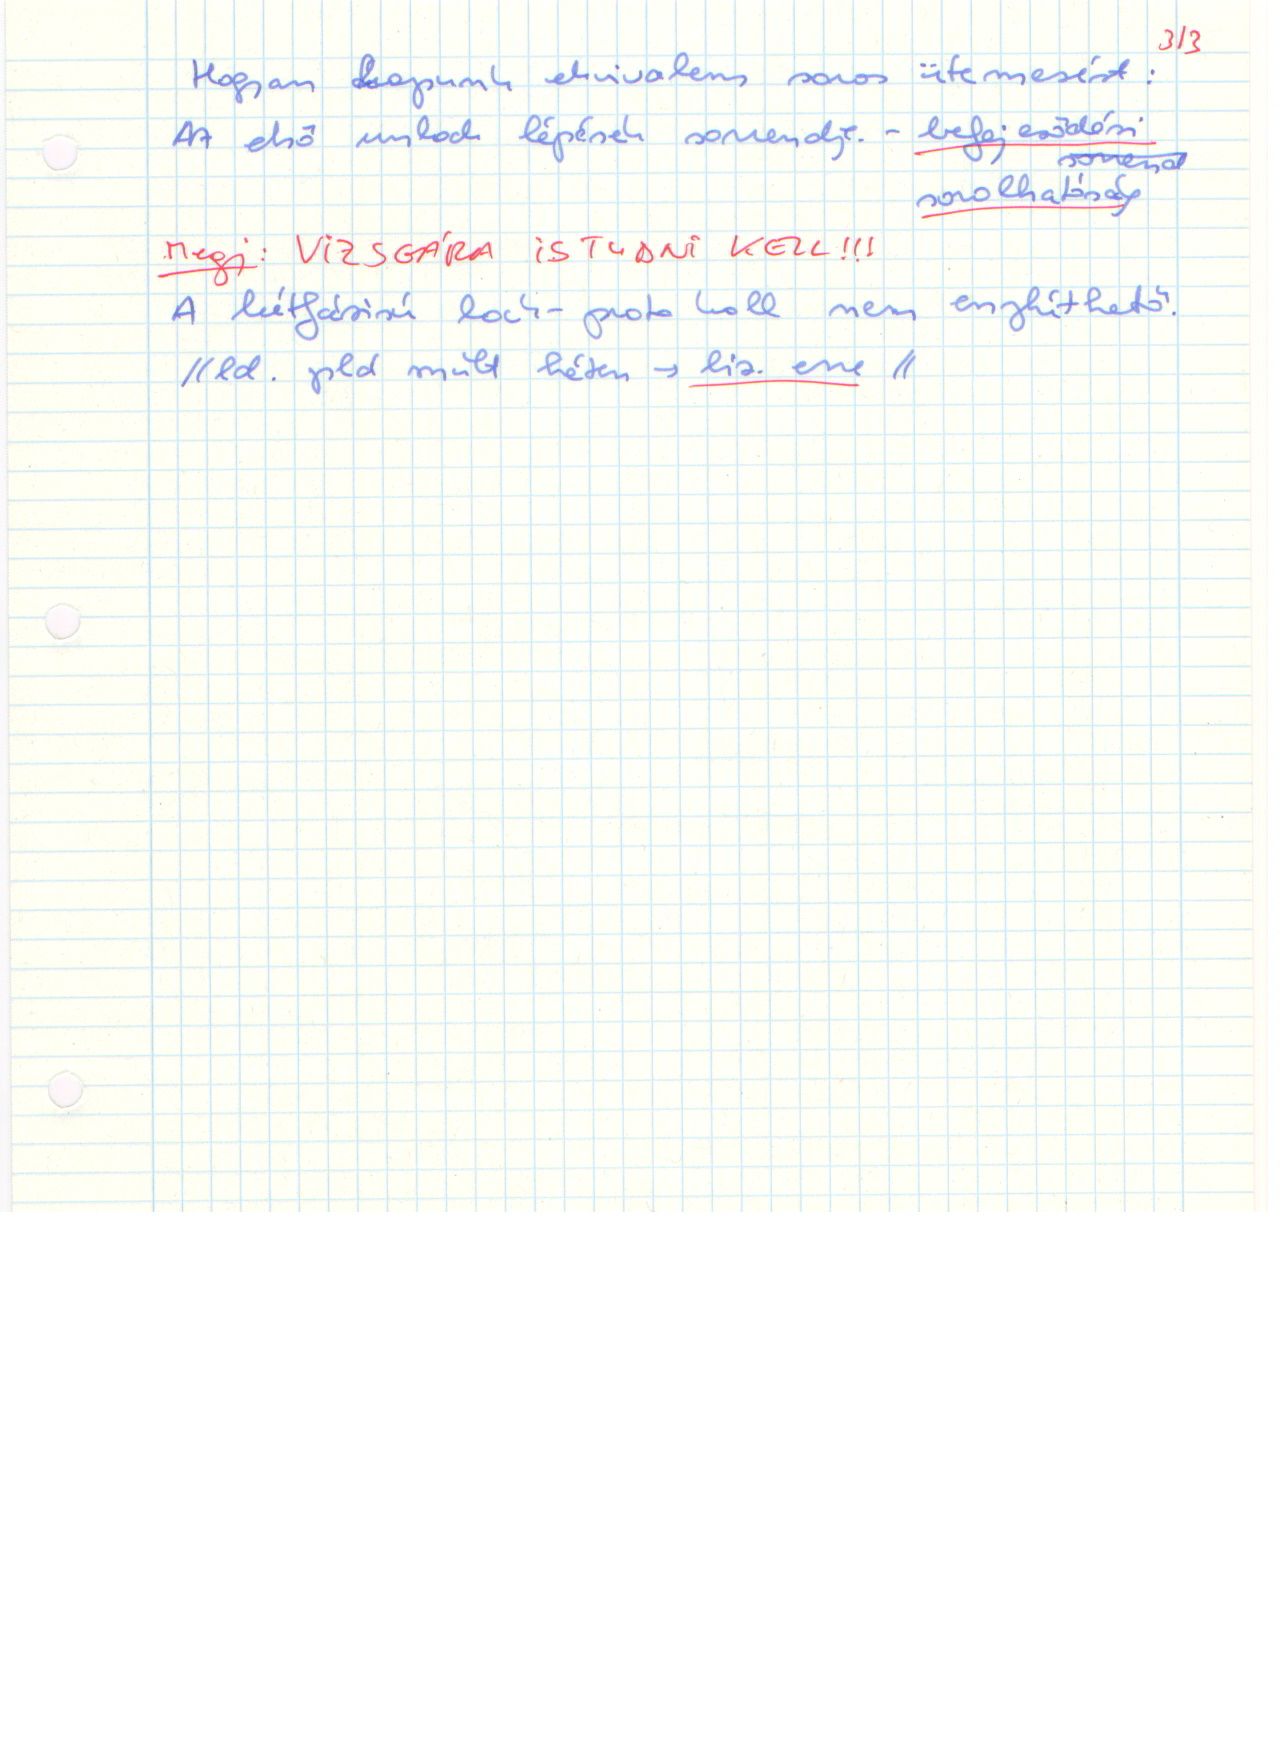 3/3
Hogyan kapunk ekvivalens soros ütemezést:
Az első unlock lépések sorrendje. - befejeződési
sorrend
sorolhatóság
Megj: VIZSGÁRA IS TUDNI KELL!!!
A kétfázisú lock-protokoll nem enyhíthető.
//ld. pld múlt héten → biz. erre //